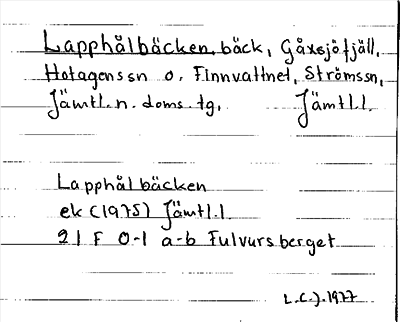 Lapphålbäcken, bäck, Gåxsjöfjäll,
Hotagens sn o. Finnvattnet, Ströms sn,
Jämtl. n. doms. tg, Jämtl. l.
Lapphålbäcken
ek (1975) Jämtl. l
21 F 0-1 a-b Fulvursberget
L.C.J. 1977